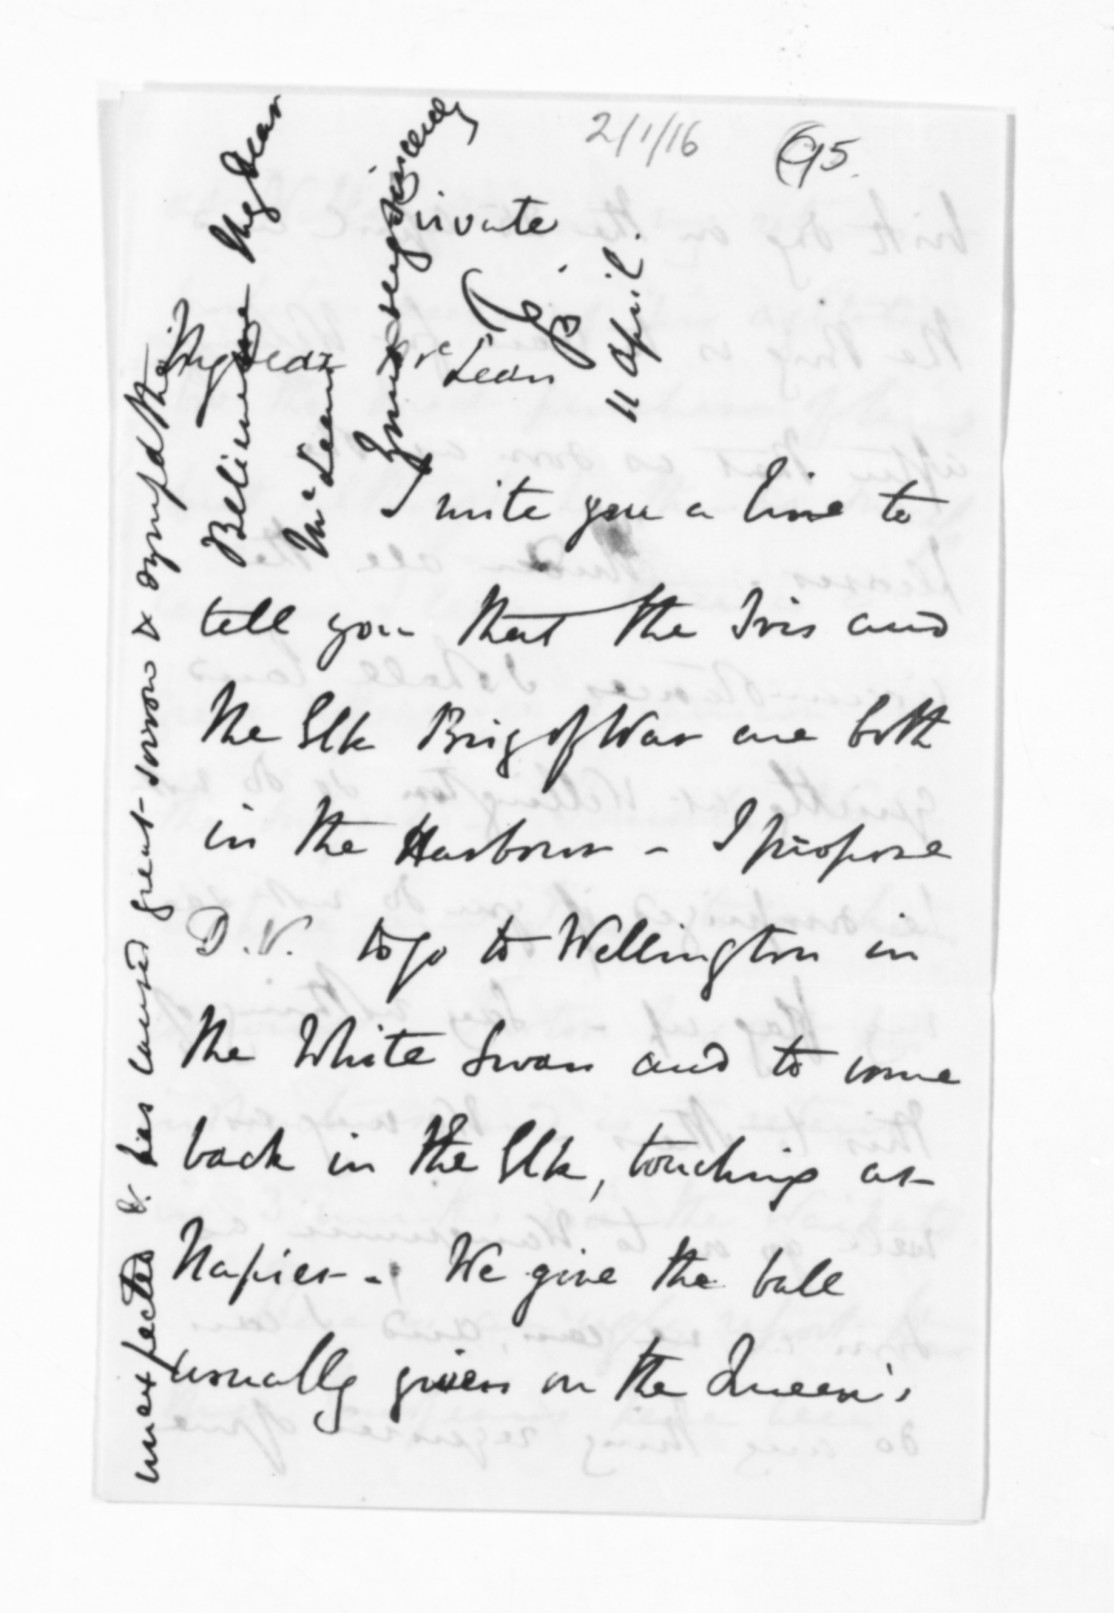 2/1/16
95.
Private
T.G.B.
11 April.
My dear McLean
I write you a line to
tell you that the Iris and
the Elk Brig of War are both
in the Harbour – I propose
D.V. to go to Wellington in
the White Swan and to come
back in the Elk, touching at
Napier –. We give the ball
usually given on the Queen's
unexpected & has caused great sorrow & sympathy
Believe me My dear
McLean
Yours very sincerely